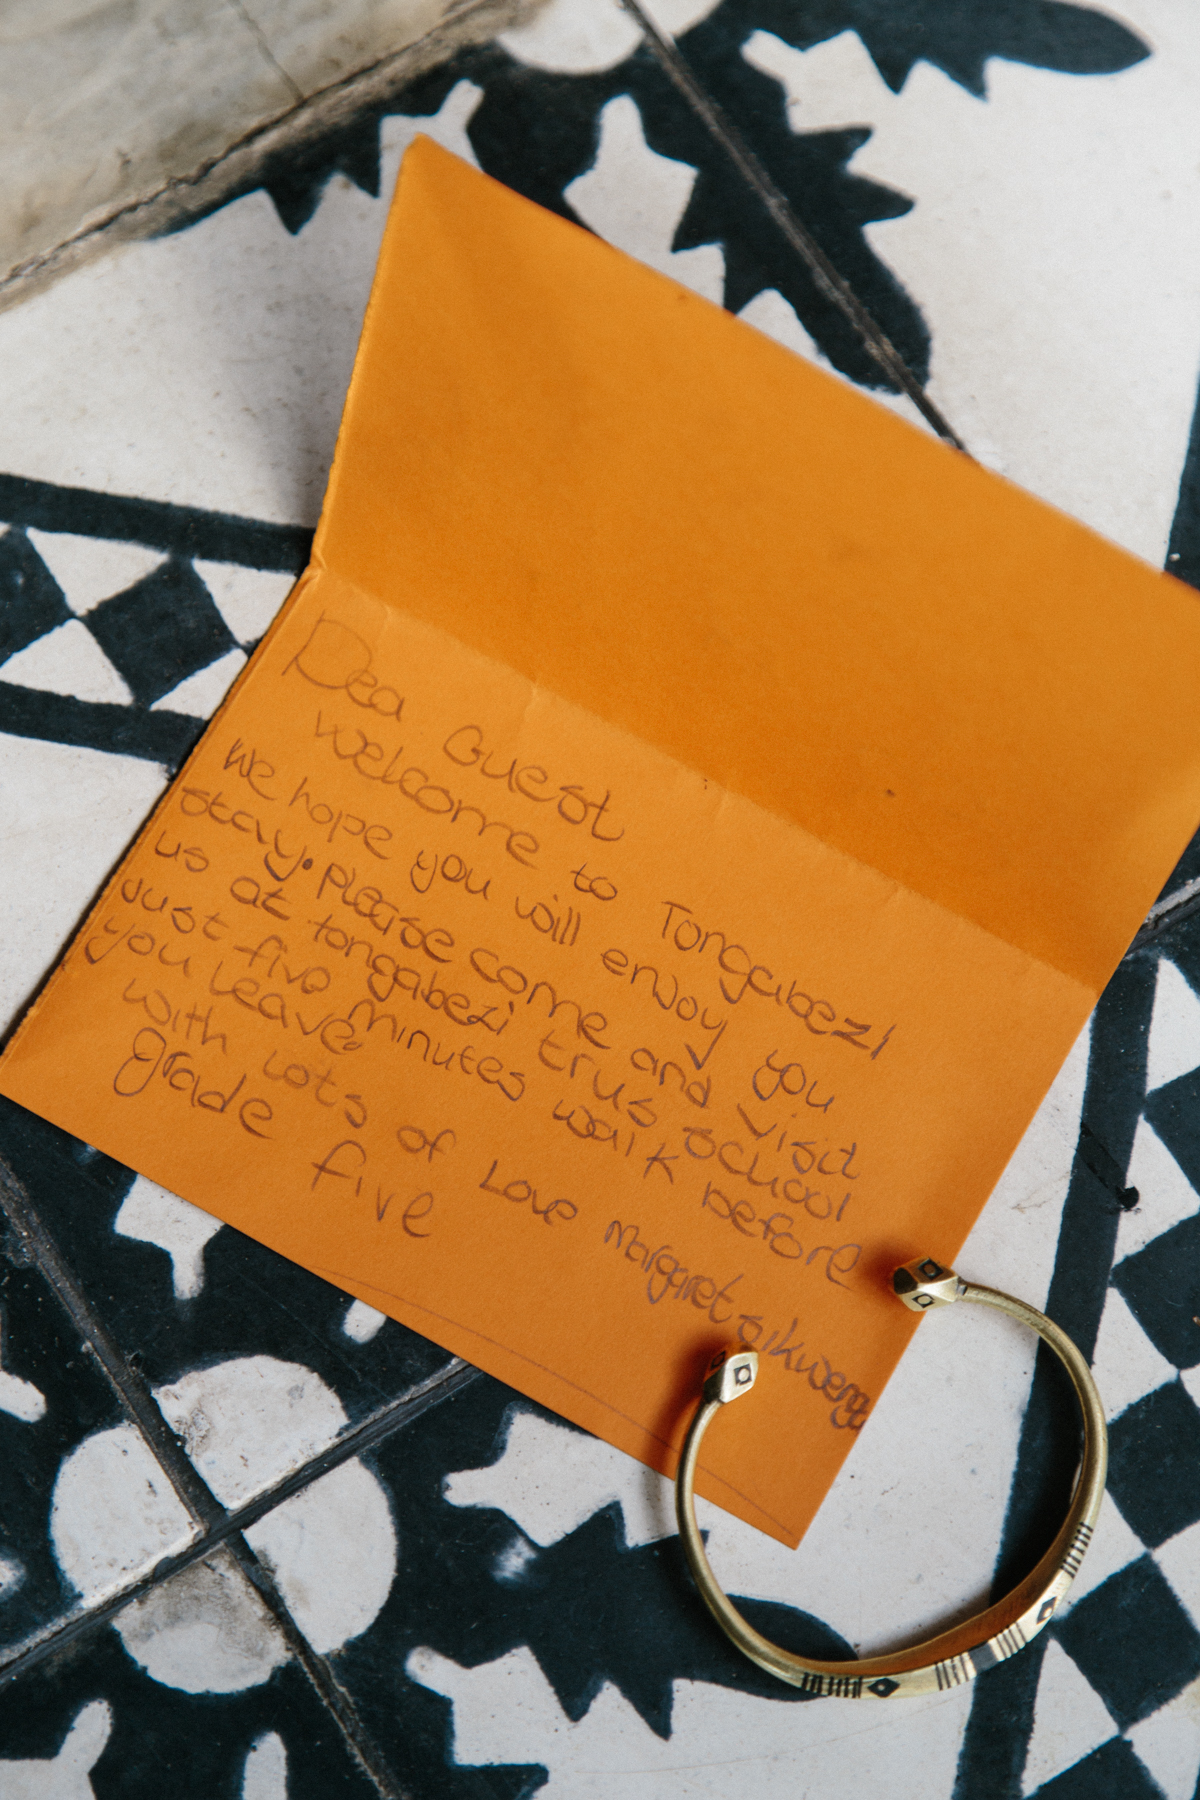 Dea Guest
welcome to Tongabezi
We hope you will enjoy you
stay. please come and visit
us at tongabezi trus school
Just five minutes walk before
you leave.
with Lots of Love Margaret
grade five